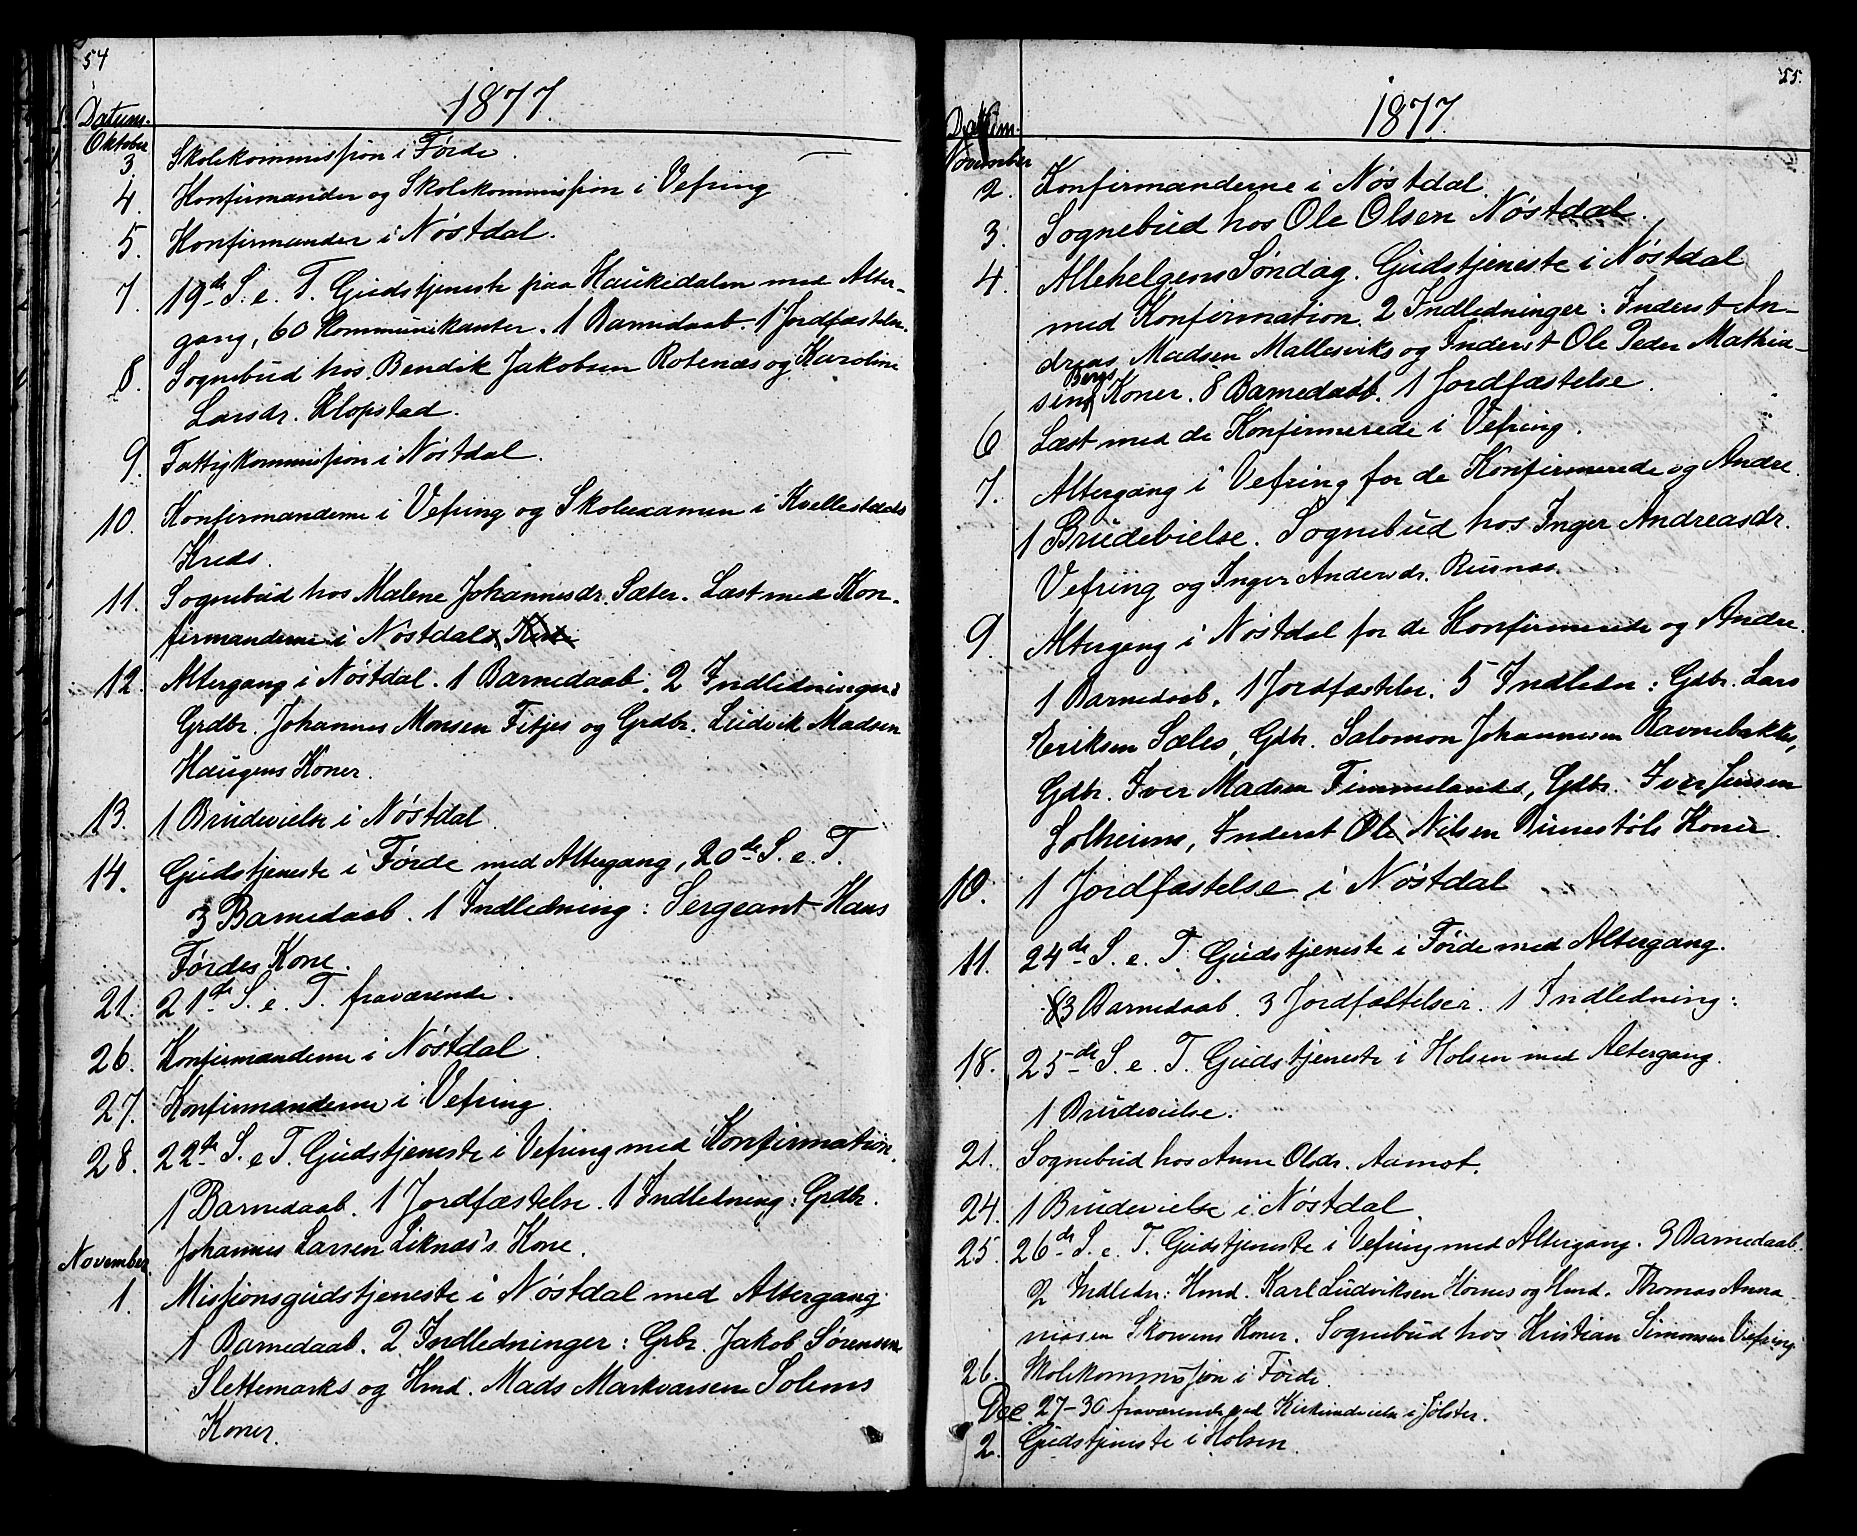 54
1877.
Datum.
Oktober
3. Skolekommission i Førde.
4. Konfirmander og Skolekommission i Vefring
5. Konfirmander i Nøstdal.
7. 19de S. e. T. Gudstjeneste paa Haukedalen med Alter-
gang, 60 Kommunikanter. 1 Barnedaab. 1 Jordfæstelse.
8. Sognebud hos Bendik Jakobsen Rotenæs og Karoline
Larsdr. Klopstad.
9. Fattigkommission i Nøstdal.
10. Konfirmanderne i Vefring og Skoleexamen i Kvellestads
Kreds.
11. Sognebud hos Malene Johannesdr. Sæter. Læst med Kon-
firmanderne i Nøstdal.
12. Altergang i Nøstdal. 1 Barnedaab. 2 Indledninger:
Grdbr. Johannes Monsen Fitjes og Grdbr. Ludvik Madsen
Haugens Koner.
13. 1 Brudevielse i Nøstdal.
14. Gudstjeneste i Førde med Altergang, 20de S. e. T.
3 Barnedaab. 1 Indledning: Sergeant Hans
Førdes Kone.
21. 21de S. e. T. fraværende.
26. Konfirmanderne i Nøstdal.
27. Konfirmanderne i Vefring.
28. 22de S. e T. Gudstjeneste i Vefring med Konfirmation.
1 Barnedaab. 1 Jordfæstelse. 1 Indledning: Grdbr.
Johannes Larsen Liknæs's Kone.
November
1. Missionsgudstjeneste i Nøstdal med Altergang.
1 Barnedaab. 2 Indledninger: Grbr. Jakob Sørensen
Slettemarks og Hmd. Mads Markvarsen Solems
Koner.
55.
1877.
Datum.
November
2. Konfirmanderne i Nøstdal.
3. Sognebud hos Ole Olsen Nøstdal.
4. Allehelgens Søndag. Gudstjeneste i Nøstdal
med Konfirmation. 2 Indledninger: Inderst An-
dreas Madsen Mallesviks og Inderst Ole Peder Mathia-
sens Bergs Koner. 8 Barnedaab. 1 Jordfæstelse.
6 Læst med de Konfirmerede i Vefring.
7. Altergang i Vefring for de Konfirmerede og Andre.
1 Brudevielse. Sognebud hos Inger Andreasdr.
Vefring og Inger Andersdr. Rusnæs.
9. Altergang i Nøstdal for de Konfirmerede og Andre.
1 Barnedaab. 1 Jordfæstelse. 5 Indledn: Gdbr. Lars
Eriksen Sæles, Gdbr. Salomon Johannesen Ravnebakkes,
Gdbr. Iver Madsen Fimmelands, Gdbr. Iver Jensen
Solheims, Inderst Ole Nilsen Runestøls Koner.
10. 1 Jordfæstelse i Nøstdal
11. 24de S. e. T. Gudstjeneste i Førde med Altergang.
3 Barnedaab. 3 Jordfæstelser. 1 Indledning:
18. 25de S. e. T. Gudstjeneste i Holsen med Altergang.
1 Brudevielse.
21. Sognebud hos Anne Olsdr. Aamot.
24. 1 Brudevielse i Nøstdal.
25. 26de S. e. T. Gudstjeneste i Vefring med Altergang. 9 Barnedaab.
2 Indledn: Hmd. Karl Ludviksen Hornes og Hmd. Thomas Anna-
niasen Skorvens Koner. Sognebud hos Kristian Simonsen Vefring
26. Skolekommission i Førde.
27-30 fraværende ved Kirkeindvielse i Jølster.
Dec.
2. Gudstjeneste i Holsen.